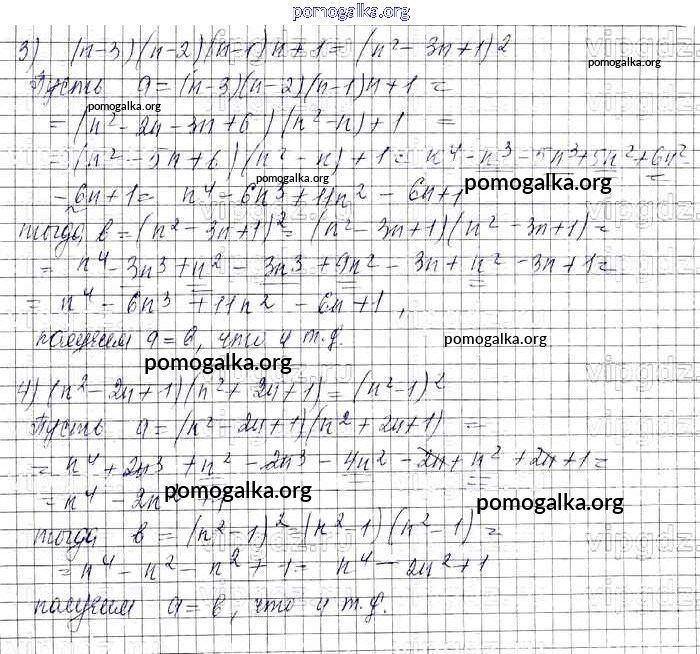 pomogalka.org
3) (n-3)(n-2)(n-1)n+1=(n²-3n+1)²
pomogalka.org
Пусть a=(n-3)(n-2)(n-1)n+1=
pomogalka.org
=(n²-2n-3n+6)(n²-n)+1=
=(n²-5n+6)(n²-n)+1=n⁴-n³-5n³+5n²+6n²
pomogalka.org
-6n+1=n⁴-6n³+11n²-6n+1
pomogalka.org
тогда в=(n²-3n+1)²=(n²-3n+1)(n²-3n+1)=
=n⁴-3n³+n²-3n³+9n²-3n+n²-3n+1=
=n⁴-6n³+11n²-6n+1,
получим a=в, что и т.д.
pomogalka.org
pomogalka.org
4) (n²-2n+1)(n²+2n+1)=(n²-1)²
Пусть a=(n²-2n+1)(n²+2n+1)=
=n⁴+2n³+n²-2n³-4n²-2n+n²+2n+1=
=n⁴-2n²+1
pomogalka.org
pomogalka.org
тогда в=(n²-1)²=(n²-1)(n²-1)=
=n⁴-n²-n²+1=n⁴-2n²+1
получим a=в, что и т.д.